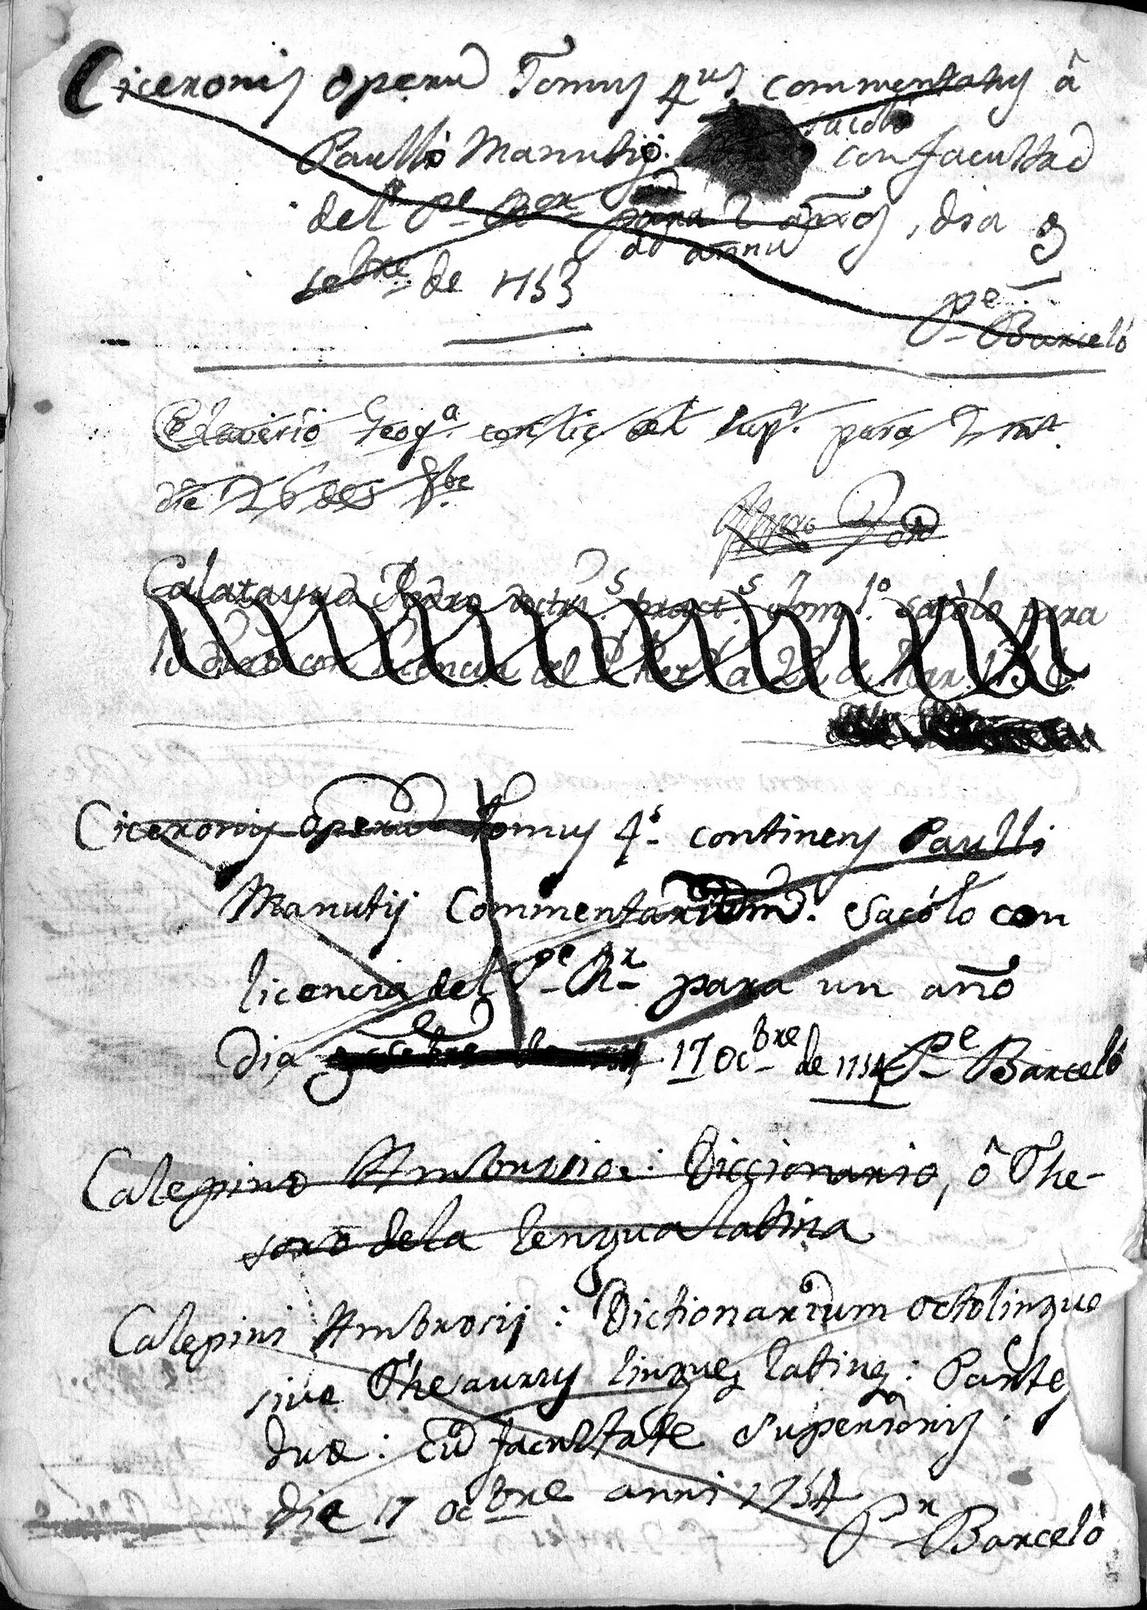 Ciceronis operũ Tomus 4us commentatus â
Paullo Manutij. sacolo con facultad
del Pe Ror para 2 años, dia 9
ad annũ
7ebre de 1753
Pe Barceló
Claverio Geoga. con lic. del Supr. para
die 26 de 8bre
Calatayud Pedro doctrs. practs. Tomo 1o. sacòlo para
con licencia del P. Rer. a 22 de Mar. 175
Ciceronis operũ Tomus 4s. continens Paulli
Manutij Commentariũm. Sacólo con
licencia del Pe Rr para un año
Dia 17 Ocbre de 1754 Pe Barceló
Calepino Ambrosio: Diccionario, ô The-
soro dela lengua latina
Calepini Ambrosij: Dictionarium octolingue
sive Thesaurus linguę latinę: Partes
duæ: cũ facultate Superioris.
die 17 ocbre anni 1754
Pr Barceló